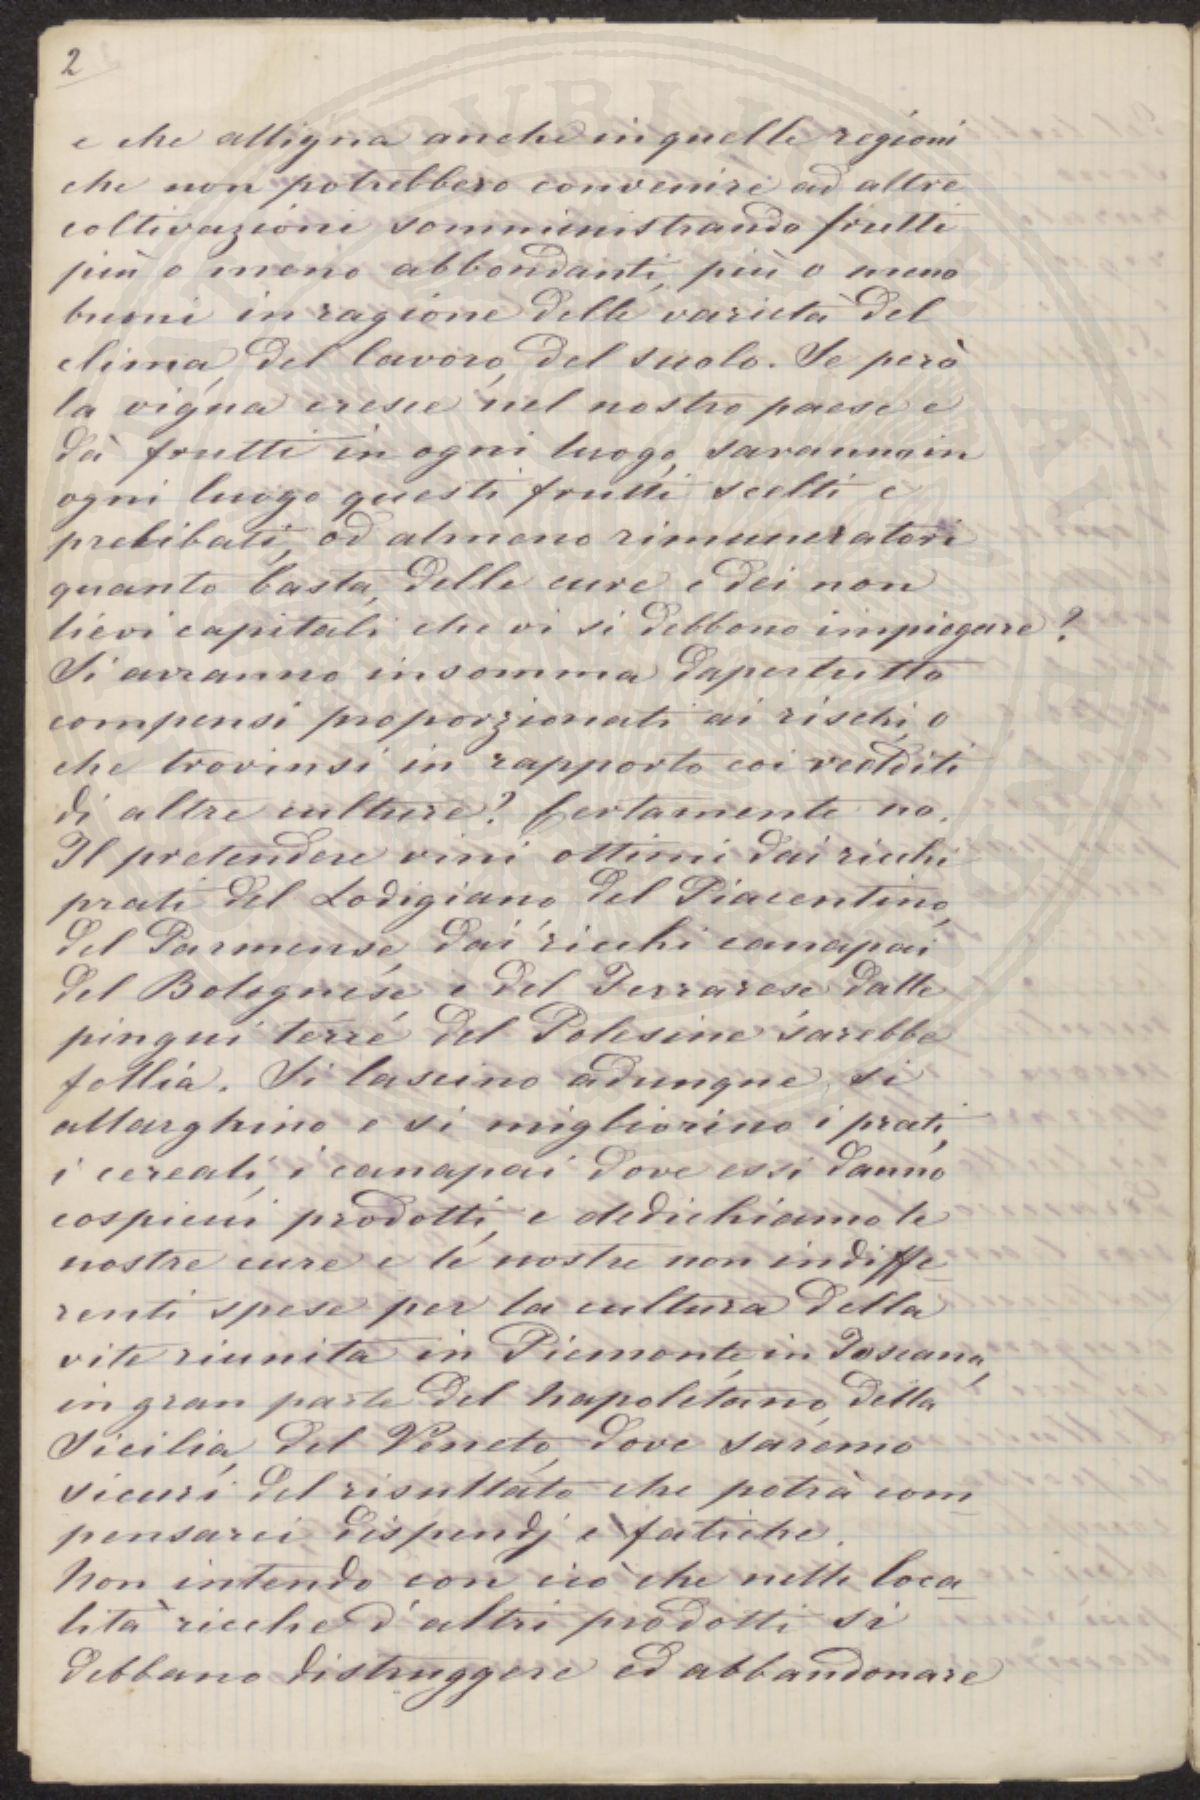 2
e che alligna anche in quelle regioni
che non potrebbero convenire ad altre
coltivazioni somministrando frutti
più o meno abbondanti, più o meno
buoni in ragione delle varietà del
clima, del lavoro, del suolo. Se però
la vigna cresce nel nostro paese e
dà frutti in ogni luogo, saranno in
ogni luogo questi frutti scelti e
prelibati, od almeno rimuneratori
quanto basta, delle cure e dei non
lievi capitali che vi si debbono impiegare?
Si avranno insomma dapertutto
compensi proporzionati ai rischi, o
che trovinsi in rapporto coi redditi
di altre culture? Certamente no.
Il pretendere vini ottimi dai ricchi
prati del Lodigiano del Piacentino,
del Parmense, dai ricchi canapai
del Bolognese e del Ferrarese dalle
pingui terre del Polesine sarebbe
follia. Si lascino adunque, si
allarghino e si migliorino i prati,
i cereali, i canapai dove essi danno
cospicui prodotti, e dedichiamo le
nostre cure e le nostre non indiffe-
renti spese per la cultura della
vite riunita in Piemonte, in Toscana,
in gran parte del napoletano, della
Sicilia, del Veneto, dove saremo
sicuri del risultato che potrà com-
pensarci dispendj e fatiche.
Non intendo con ciò che nelle loca-
lità ricche d'altri prodotti si
debbano distruggere ed abbandonare